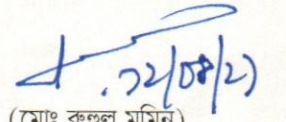 ১২/০৪/২১
(মোঃ রুহুল মমিন)